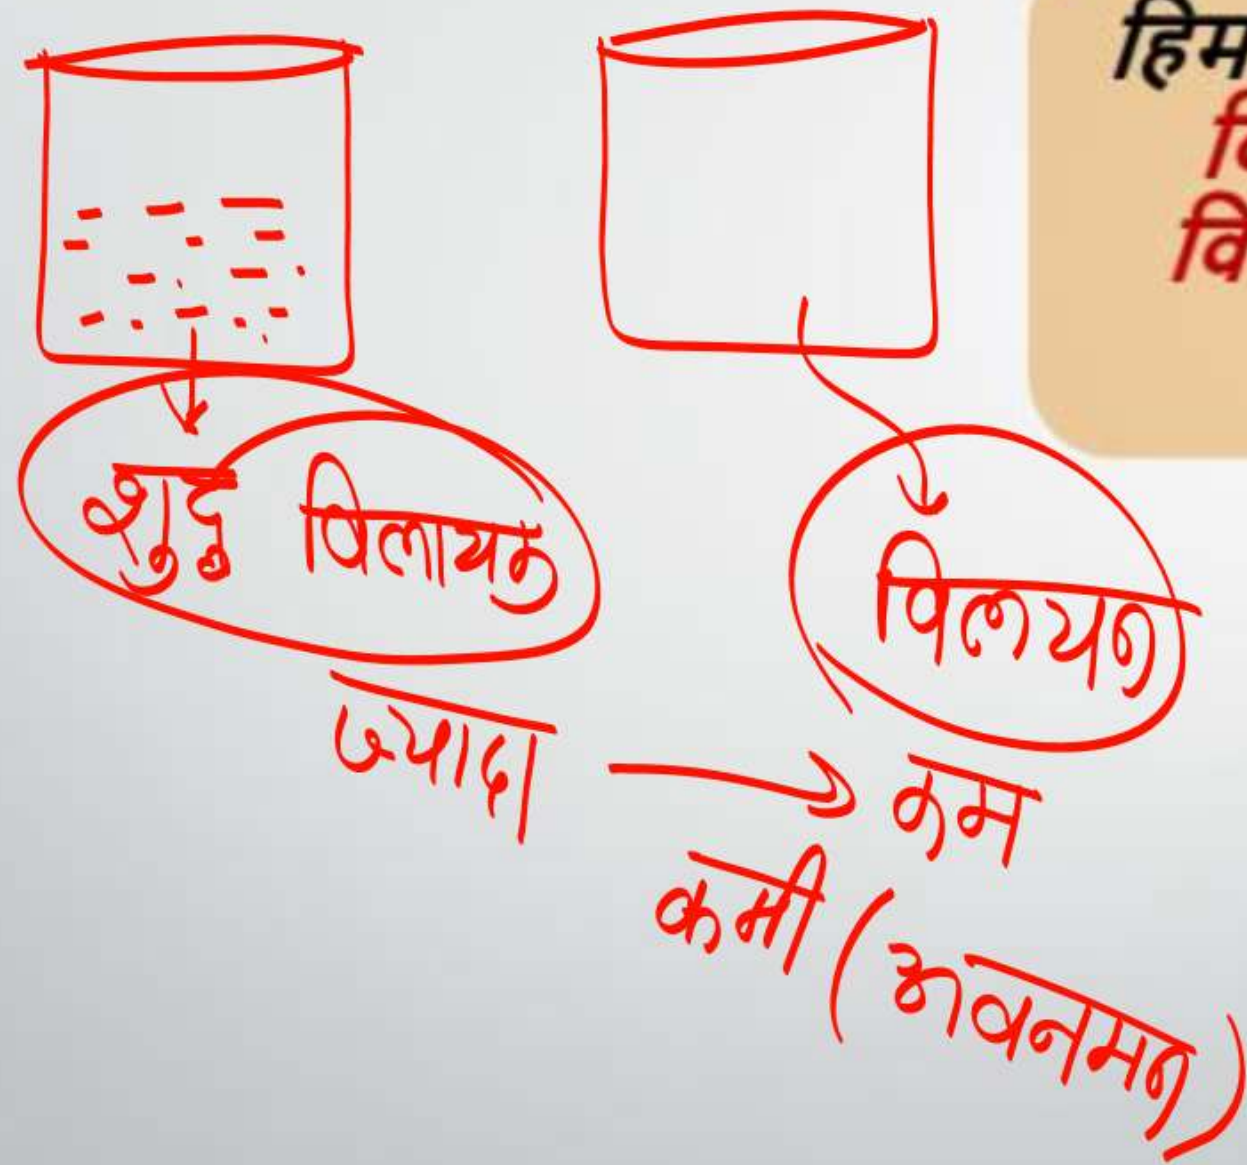 हिम
वि
शुद्ध विलायक
विलयन
ज्यादा → कम
कमी (अवनमन)